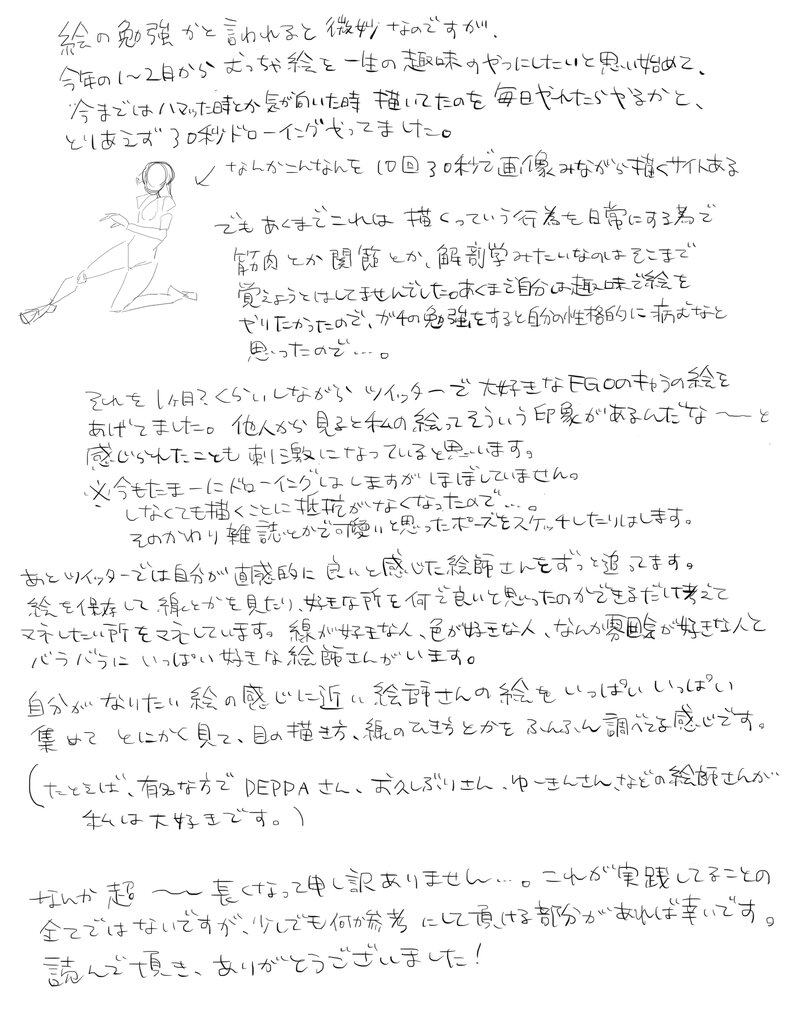 絵の勉強かと言われると微妙なのですが、
今年の1〜2月からむっちゃ絵を一生の趣味のやつにしたいと思い始めて、
今まではハマった時とか気が向いた時描いてたのを毎日やれたらやるかと、
とりあえず30秒ドローイングやってました。
↙なんかこんなんを10回30秒で画像みながら描くサイトある
でもあくまでこれは描くっていう行為を日常にする為で
筋肉とか関節とか、解剖学みたいなのはそこまで
覚えようとはしてませんでした。あくまで自分は趣味で絵を
やりたかったので、ガチの勉強をすると自分の性格的に病むなと
思ったので…。
それを1ヶ月?くらいしながらツイッターで大好きなFGOのキャラの絵を
あげてました。他人から見ると私の絵ってそういう印象があるんだな〜と
感じられたことも刺激になっていると思います。
※今もたまーにドローイングはしますがほぼしていません。
しなくても描くことに抵抗がなくなったので…。
そのかわり雑誌とかで可愛いと思ったポーズをスケッチしたりはします。
あとツイッターでは自分が直感的に良いと感じた絵師さんをずっと追ってます。
絵を保存して線とかを見たり、好きな所を何で良いと思ったのかできるだけ考えて
マネしたい所をマネしています。線が好きな人、色が好きな人、なんか雰囲気が好きな人と
バラバラにいっぱい好きな絵師さんがいます。
自分がなりたい絵の感じに近い絵師さんの絵をいっぱいいっぱい
集めてとにかく見て、目の描き方、線のひき方とかをふんふん調べてる感じです。
(たとえば、有名な方でDEPPAさん、お久しぶりさん、ゆーきんさん、などの絵師さんが
私は大好きです。)
なんか超〜〜長くなって申し訳ありません…。これが実践してることの
全てではないですが、少しでも何か参考にして頂ける部分があれば幸いです。
読んで頂き、ありがとうございました!